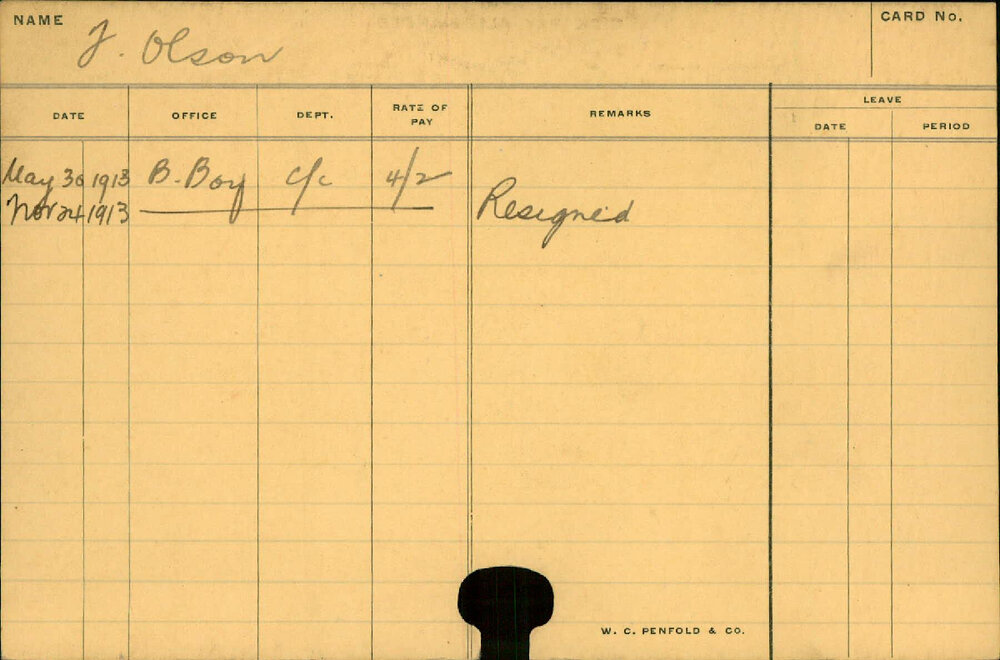 NAME
F. Olson
CARD No.
DATE OFFICE DEPT. RATE OF PAY REMARKS LEAVE
DATE PERIOD
May 30 1913 B. Boy c/c 4/2
Nov 24 1913 Resigned
W. C. PENFOLD & CO.